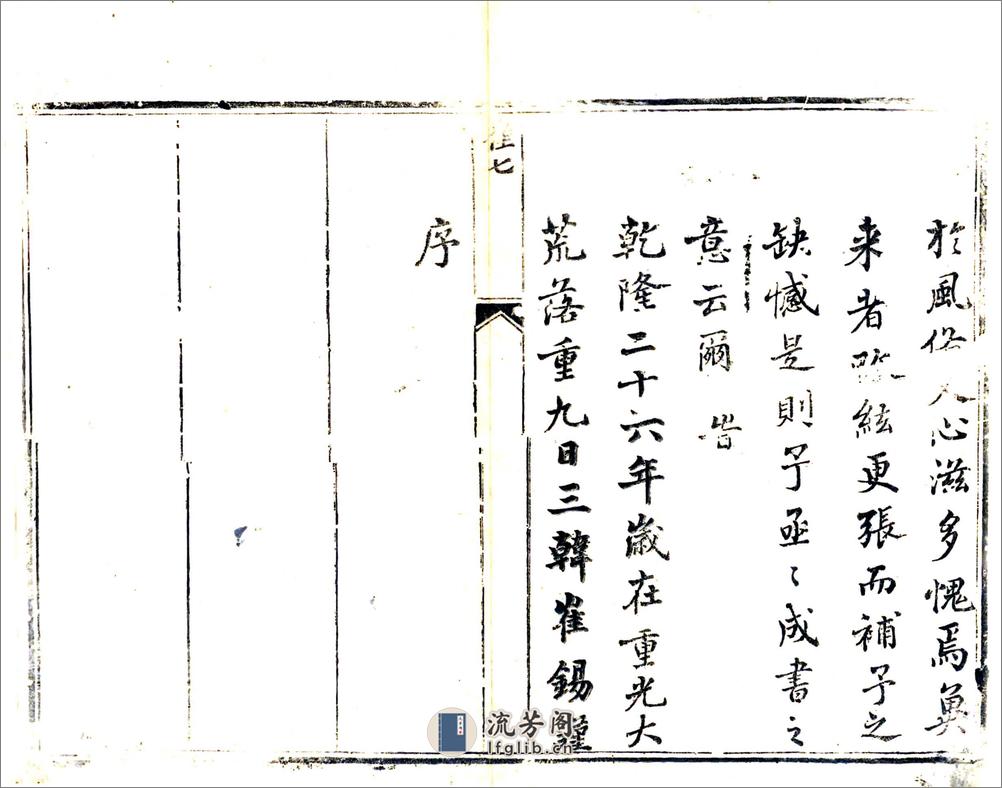 於風俗人心滋多愧焉冀
来者改絃更張而補予之
缺憾是則予亟〻成書之
意云爾 旹
乾隆二十六年歲在重光大
荒落重九日三韓崔錫謹
七
序
流芳阁
lfglib.cn